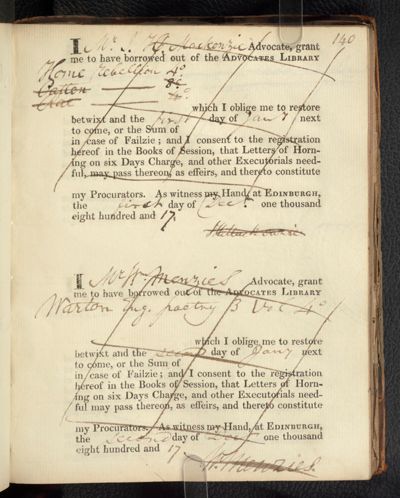 140
I Mr. J. H. Mackenzie Advocate, grant
me to have borrowed out of the ADVOCATES LIBRARY
Home, Rebellion 4o
8o
4o
which I oblige me to restore
betwixt and the first day of Jany next
to come, or the Sum of
in case of Failzie; and I consent to the registration
hereof in the Books of Session, that Letters of Horn-
ing on six Days Charge, and other Executorials need-
ful, may pass thereon, as effeirs, and thereto constitute
my Procurators. As witness my Hand, at EDINBURGH,
the first day of Decr one thousand
eight hundred and 17.
JHMackenzie
I Mr W. Menzies Advocate, grant
me to have borrowed out of the ADVOCATES LIBRARY
Warton Eng. poetry 3 Vol 4o
which I oblige me to restore
betwixt and the second day of Jany next
to come, or the Sum of
in case of Failzie; and I consent to the registration
hereof in the Books of Session, that Letters of Horn-
ing on six Days Charge, and other Executorials need-
ful may pass thereon, as effeirs, and thereto constitute
my Procurators. As witness my Hand, at EDINBURGH,
the Second day of Decr one thousand
eight hundred and 17
W. Menzies.